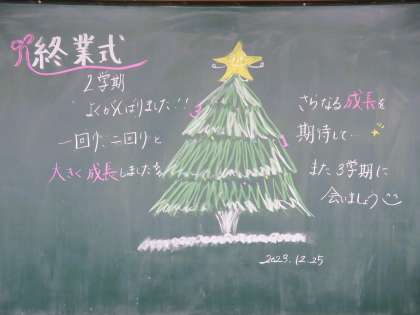 終業式
2学期
よくがんばりました!!
一回り、二回りと
大きく成長しましたね
さらなる成長を
期待して…
また3学期に
会いましょう
2023.12.25